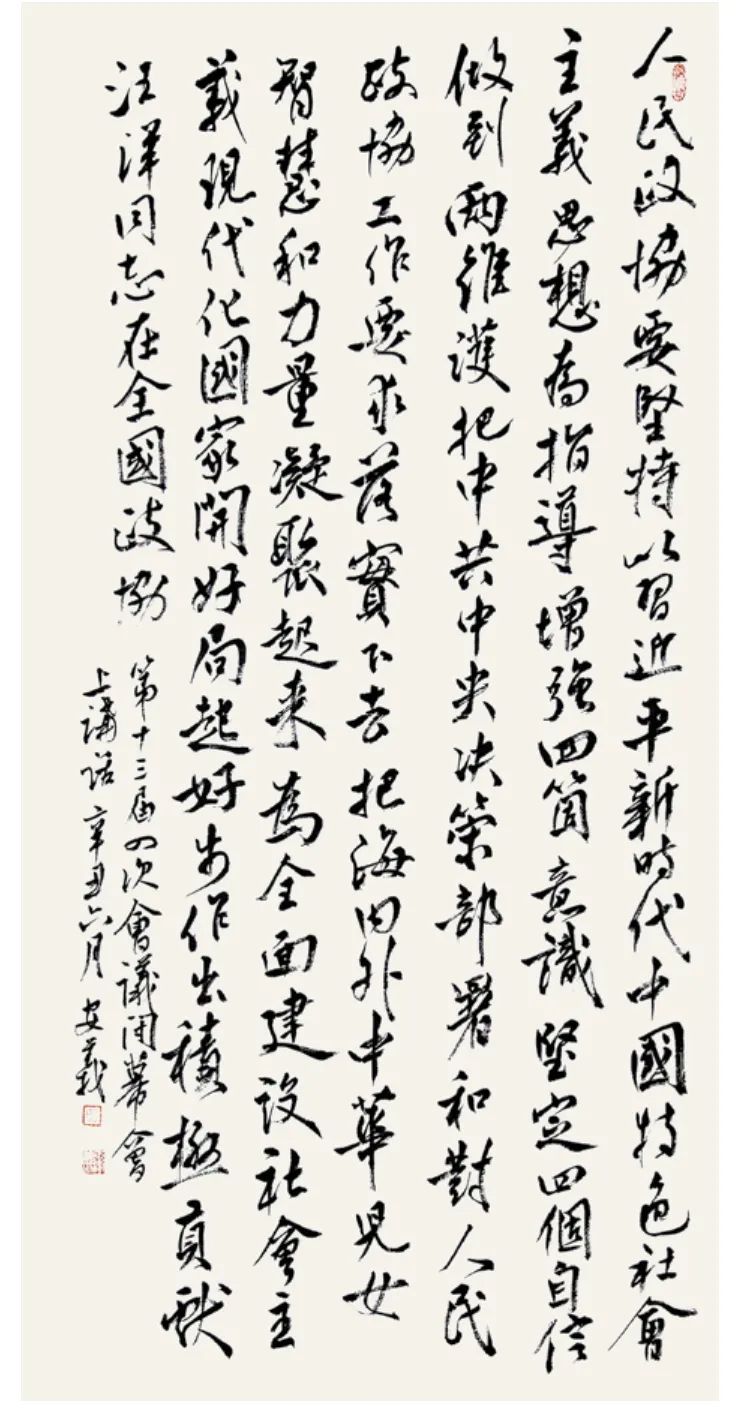 人民政協要堅持以習近平新時代中國特色社會
主義思想為指導增強四箇意識堅定四個自信
做到兩維護把中共中央決策部署和對人民
政協工作要求落實下去把海内外中華兒女
智慧和力量凝聚起来為全面建設社會主
義現代化國家開好局起好步作出積極貢獻
汪洋同志在全國政協
第十三届四次會議閉幕會
上講話辛丑六月安義